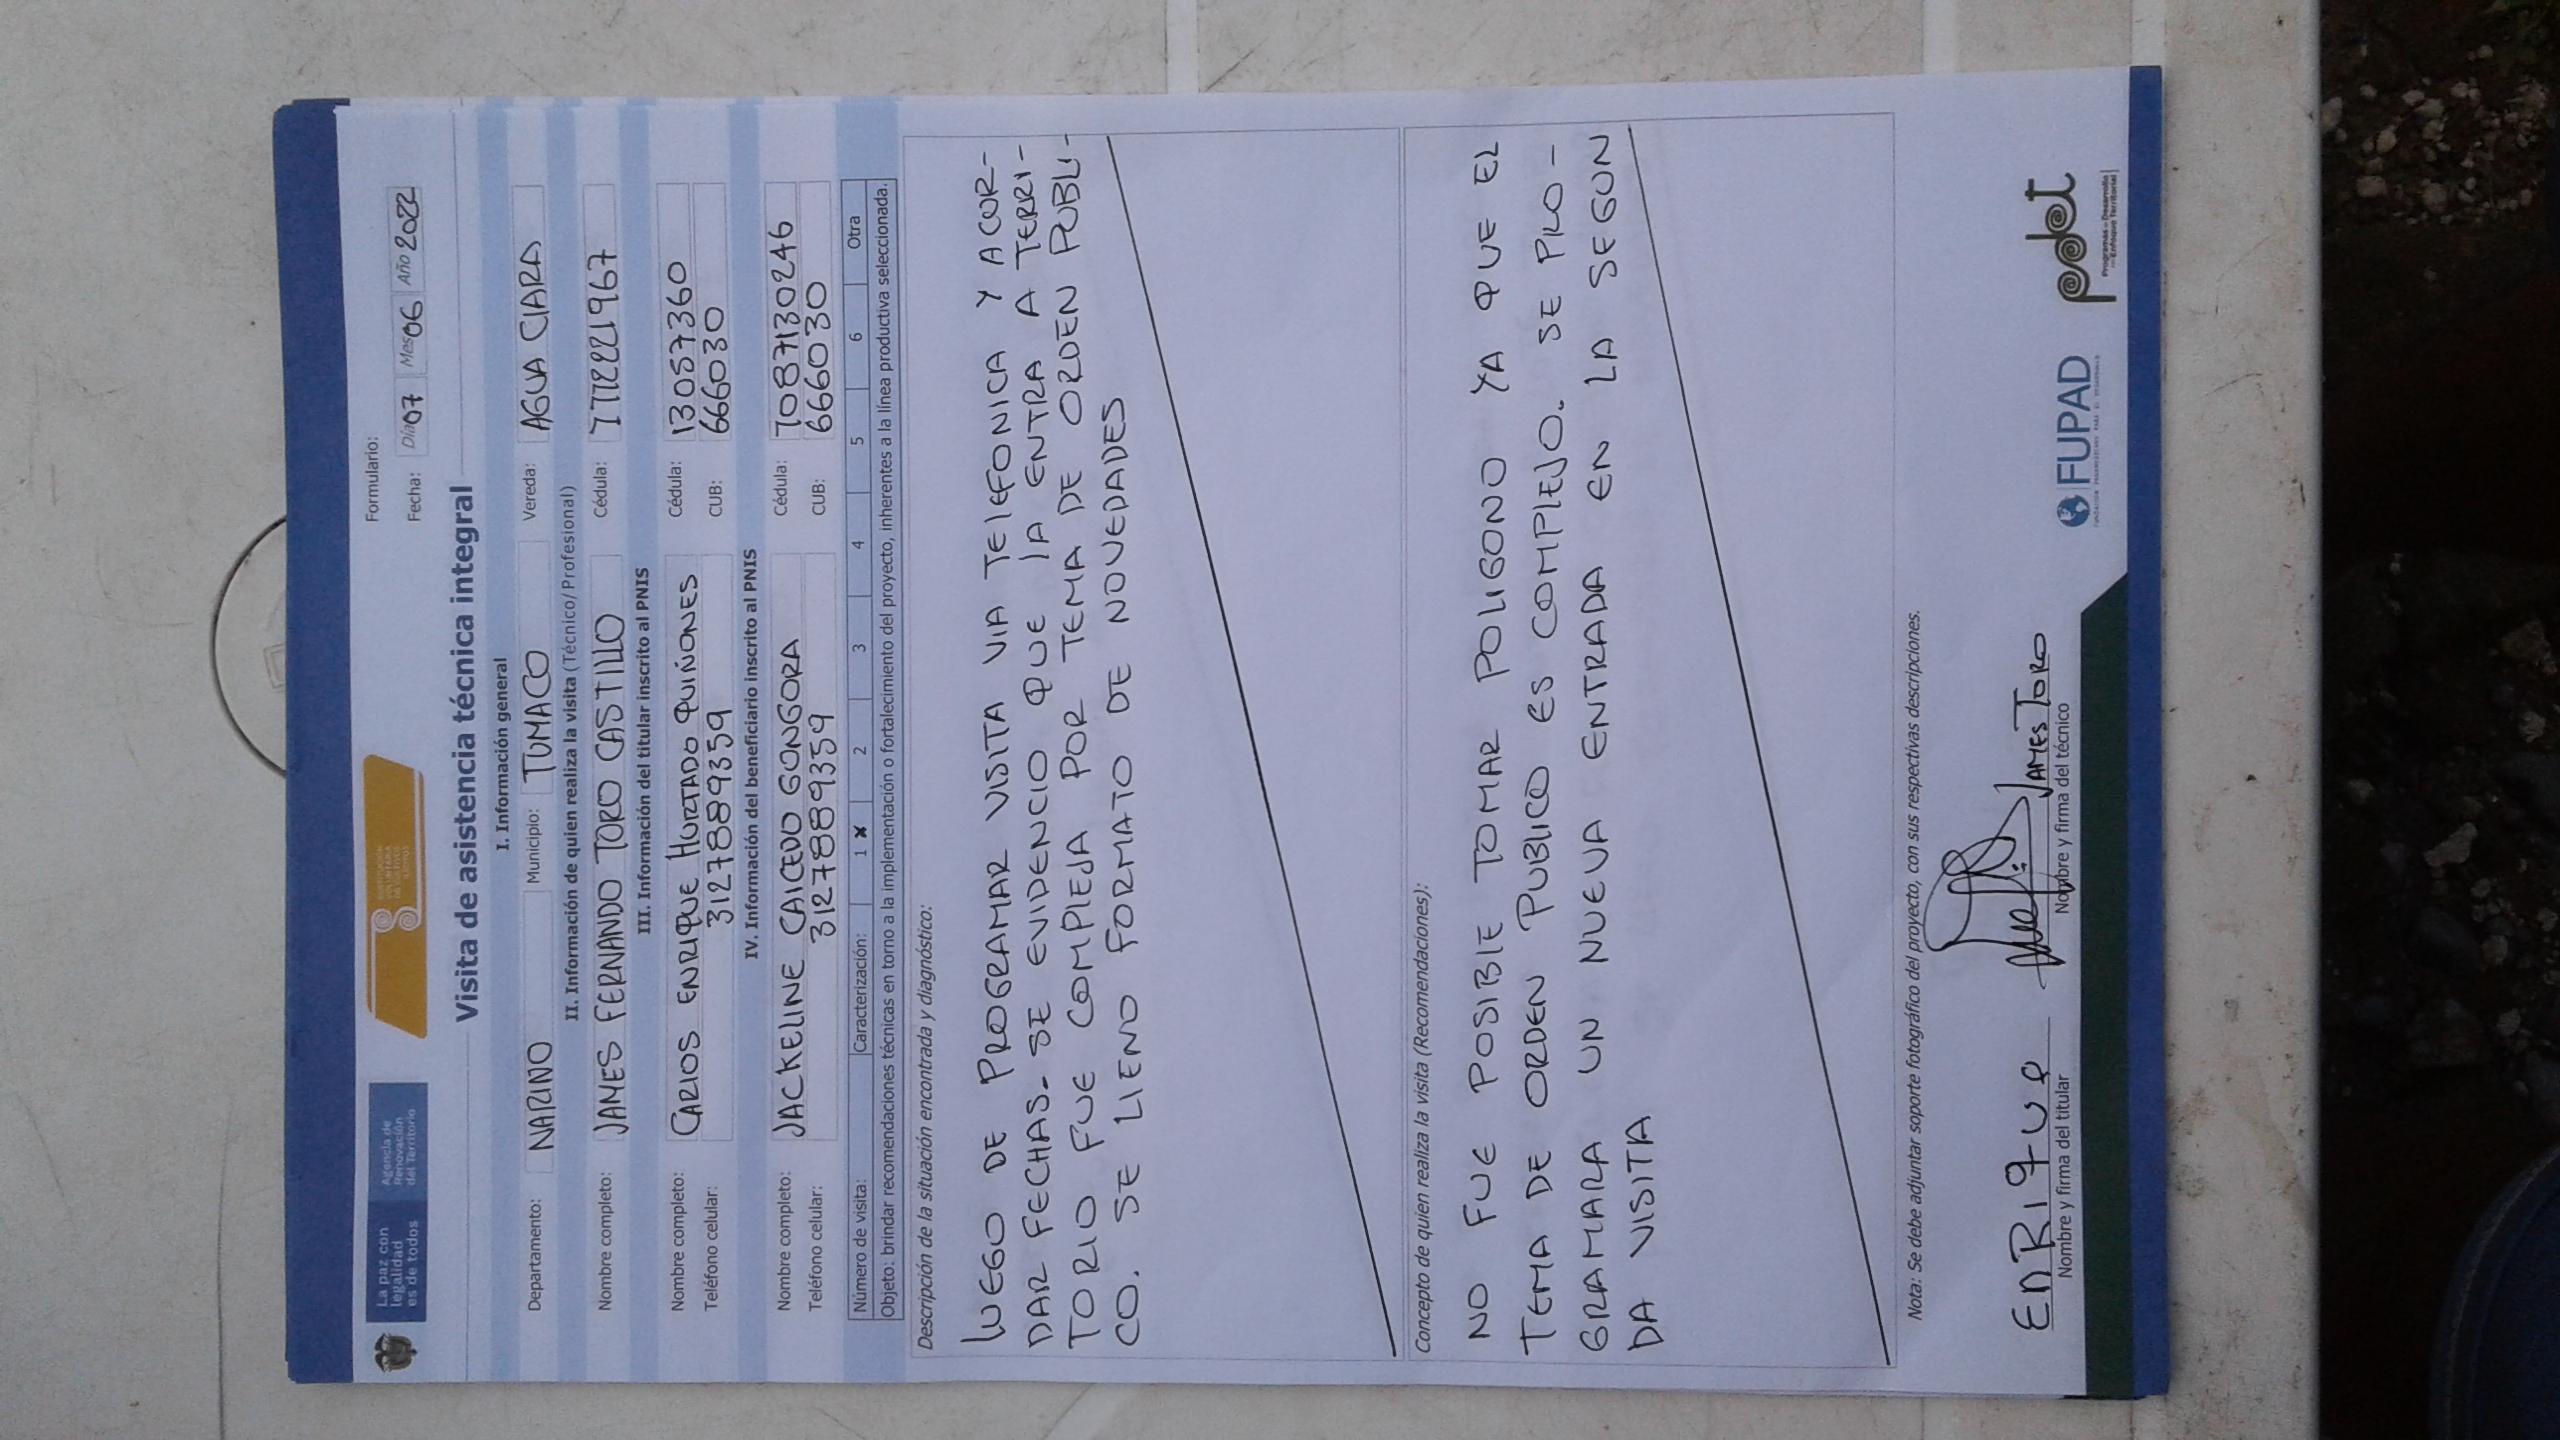 La paz con
legalidad
es de todos
Agencia de
Renovación
del Territorio
SUSTITUCIÓN
VOLUNTARIA
DE CULTIVOS
ILÍCITOS
Formulario:
Fecha: Día 07 Mes 06 Año 2022
Visita de asistencia técnica integral
I. Información general
Departamento: NARINO Municipio: TUMACO Vereda: AGUA CLARA
II. Información de quien realiza la visita (Técnico/Profesional)
Nombre completo: JAMES FERNANDO TORO CASTILLO Cédula:
III. Información del titular inscrito al PNIS
Nombre completo: CARLOS ENRIQUE HURTADO QUIÑONES Cédula: 13057360
Teléfono celular: 3127889359 CUB: 666030
IV. Información del beneficiario inscrito al PNIS
Nombre completo: JACKELINE CAICEDO GONGORA Cédula: 1087130246
Teléfono celular: 3127889359 CUB: 666030
Número de visita: Caracterización: 1 X 2 3 4 5 6 Otra
Objeto: brindar recomendaciones técnicas en torno a la implementación o fortalecimiento del proyecto, inherentes a la línea productiva seleccionada.
Descripción de la situación encontrada y diagnóstico:
LUEGO DE PROGRAMAR VISITA VIA TELEFONICA Y ACOR-
DAR FECHAS. SE EVIDENCIO QUE LA ENTRA A TERRI-
TORIO FUE COMPLEJA POR TEMA DE ORDEN PUBLI-
CO. SE LLENO FORMATO DE NOVEDADES
Concepto de quien realiza la visita (Recomendaciones):
NO FUE POSIBLE TOMAR POLIGONO YA QUE EL
TEMA DE ORDEN PUBLICO ES COMPLEJO. SE PRO-
GRAMARA UN NUEVA ENTRADA EN LA SEGUN
DA VISITA
Nota: Se debe adjuntar soporte fotográfico del proyecto, con sus respectivas descripciones.
ENRIQUE
Nombre y firma del titular
JAMES TORO
Nombre y firma del técnico
FUPAD
pdet
Programas de Desarrollo
con Enfoque Territorial